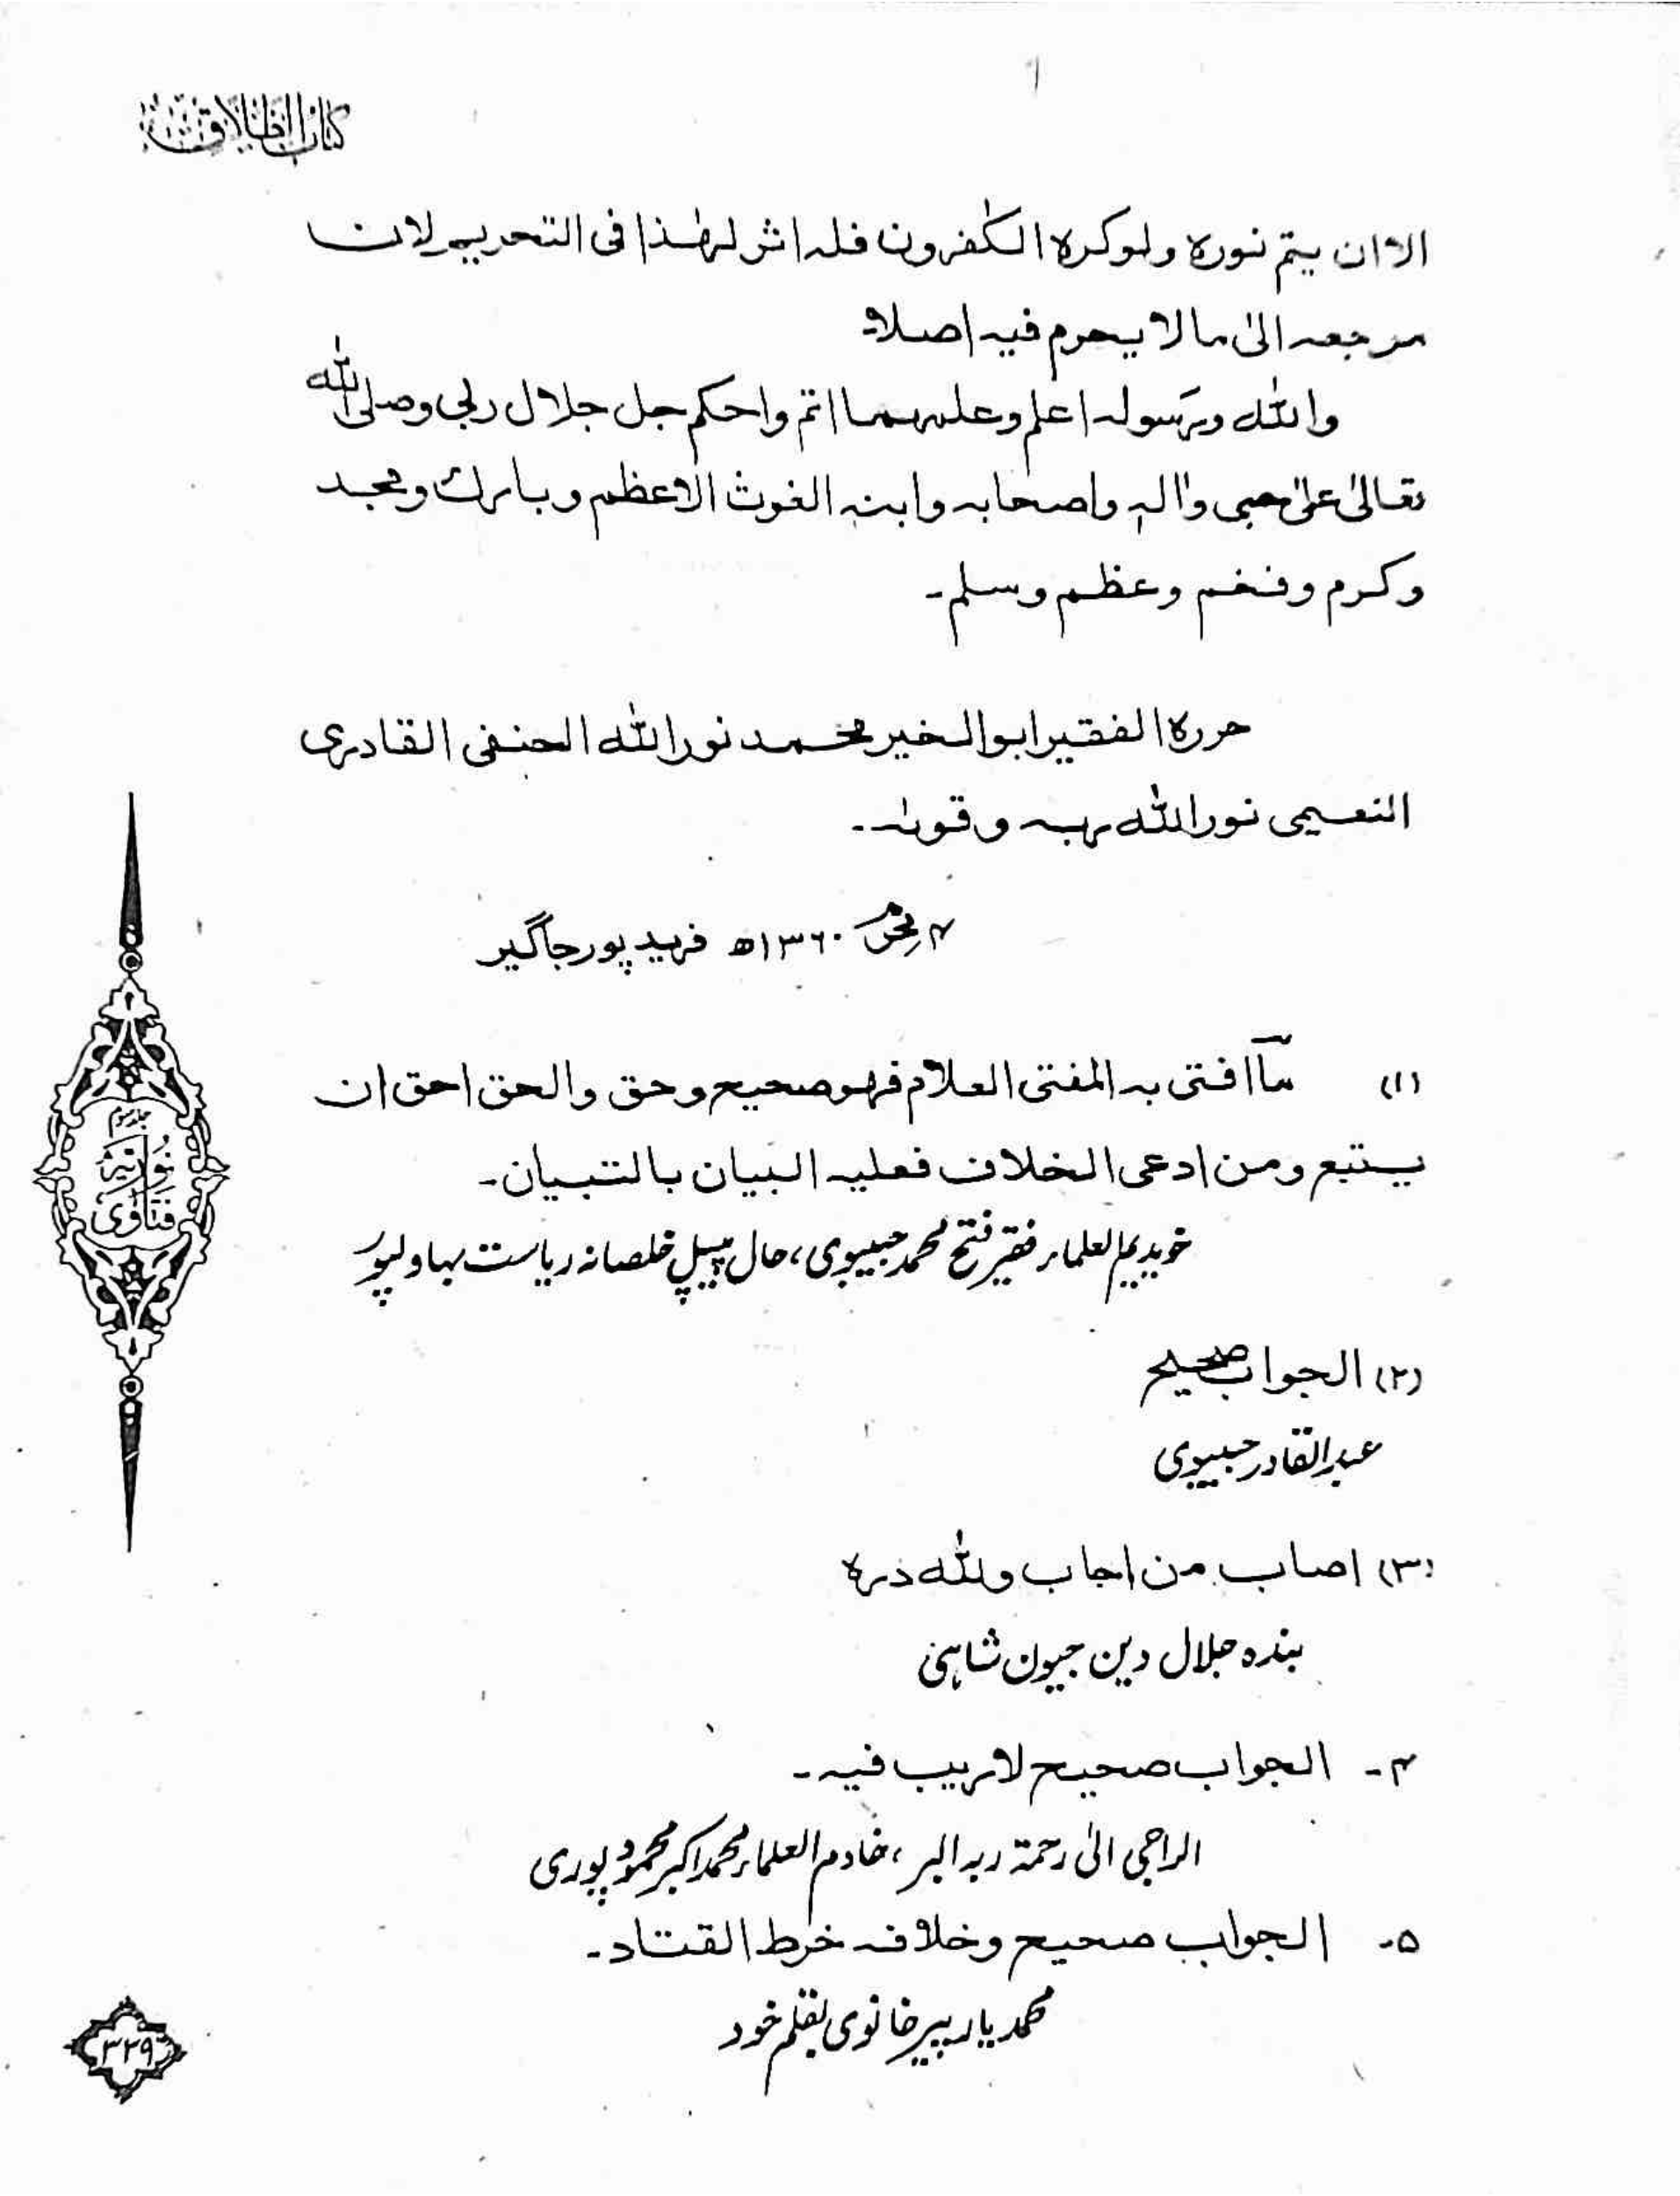 كتاب الطلاق
الا ان يتم نوره ولو كره الكٰفرون فلا اثر لهٰذا فى التحريم لان
مرجعه الىٰ ما لا يحرم فيه اصلا۔
والله ورسوله اعلم وعلمهما اتم واحكم جل جلال ربى وصلى الله
تعالىٰ علىٰ حبى واٰله واصحابه وابنه الغوث الاعظم وبارك ومجد
وكرم وفخم وعظم وسلم۔
حرره الفقير ابو الخير محمد نور الله الحنفى القادرى
النعيمى نور الله ربه وقواه۔
۴ محرم ۱۳۶۰ھ فرید پور جاگیر
(۱) ما افتى به المفتى العلام فهو صحيح وحق والحق احق ان
يستتبع ومن ادعى الخلاف فعليه البيان بالتبيان۔
خویدیم العلماء فقیر فتح محمد حبیبوی، حال پیپل خلصانہ ریاست بہاولپور
(۲) الجواب صحيح
عبدالقادر حبیبوی
(۳) اصاب من اجاب ولله دره
بندہ جلال دین جیون شاہی
۴۔ الجواب صحيح لا ريب فيه۔
الراجی الیٰ رحمۃ ربہ البر، خادم العلماء محمد اکبر محمود پوری
۵۔ الجواب صحيح وخلافه خرط القتاد۔
محمد یار پیر خانوی بقلم خود
جلد سوم
فتاویٰ نوریہ
۳۳۹